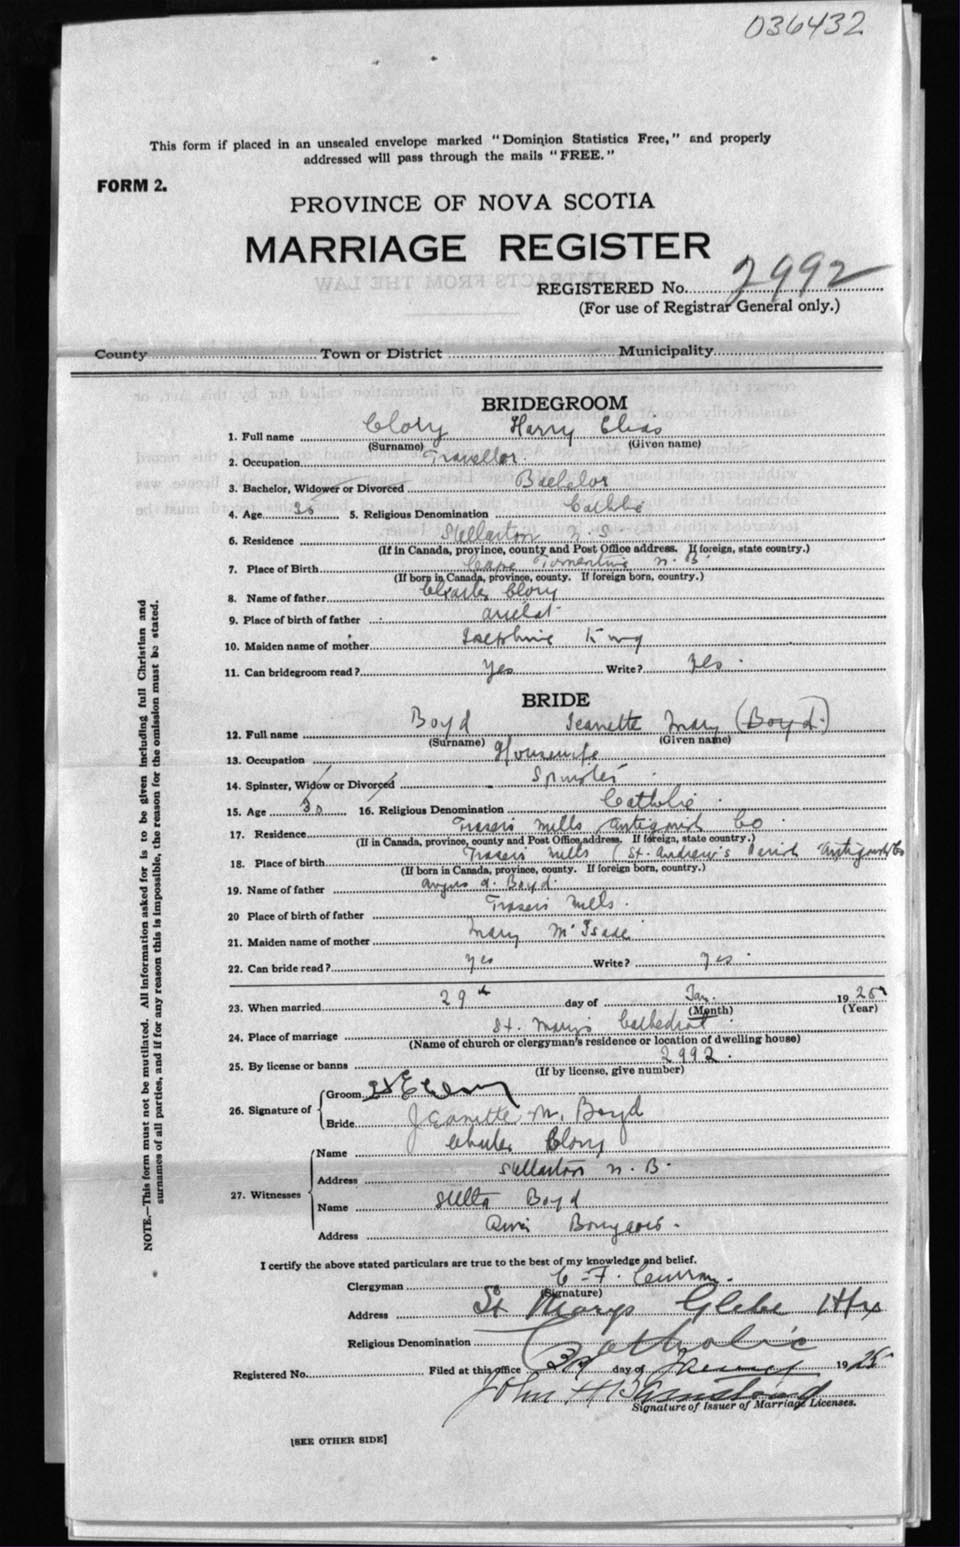 036432
This form if placed in an unsealed envelope marked "Dominion Statistics Free," and properly
addressed will pass through the mails "FREE."
FORM 2.
PROVINCE OF NOVA SCOTIA
MARRIAGE REGISTER
REGISTERED No. 2992
(For use of Registrar General only.)
County Town or District Municipality
BRIDEGROOM
1. Full name Clory Harry Elias
(Surname) (Given name)
2. Occupation Travellor
3. Bachelor, Widower or Divorced Bachelor
4. Age 5. Religious Denomination Catholic
6. Residence Stellarton N. S
(If in Canada, province, county and Post Office address. If foreign, state country.)
7. Place of Birth Cape Tormentine N. B.
(If born in Canada, province, county. If foreign born, country.)
8. Name of father Charles Clory
9. Place of birth of father
10. Maiden name of mother Josephine King
11. Can bridegroom read? Yes Write? Yes
BRIDE
12. Full name Boyd Jeanette Mary (Boyd.)
(Surname) (Given name)
13. Occupation Housewife
14. Spinster, Widow or Divorced Spinster
15. Age 30 16. Religious Denomination Catholic
17. Residence Frasers Mills Antigonish Co
(If in Canada, province, county and Post Office address. If foreign, state country.)
18. Place of birth Frasers Mills (St. Andrew's Parish Antigonish Co
(If born in Canada, province, county. If foreign born, country.)
19. Name of father Angus A. Boyd.
20 Place of birth of father Frasers Mills.
21. Maiden name of mother Mary McIsaac
22. Can bride read? Yes Write? Yes
23. When married 29th day of Jan. 1925
(Month) (Year)
24. Place of marriage St. Mary's Cathedral
(Name of church or clergyman's residence or location of dwelling house)
25. By license or banns 2992.
(If by license, give number)
26. Signature of
Groom
Bride Jeanette M. Boyd
27. Witnesses
Name Charles Clory
Address Stellarton N. B.
Name Stella Boyd
Address River Bourgeois.
I certify the above stated particulars are true to the best of my knowledge and belief.
Clergyman C. F. Curran.
(Signature)
Address St Marys Glebe Hfx
Religious Denomination Catholic
Registered No. Filed at this office day of 1925
John H Barnstead
Signature of Issuer of Marriage Licenses.
[SEE OTHER SIDE]
NOTE.—This form must not be mutilated. All information asked for is to be given including full Christian and
surnames of all parties, and if for any reason this is impossible, the reason for the omission must be stated.